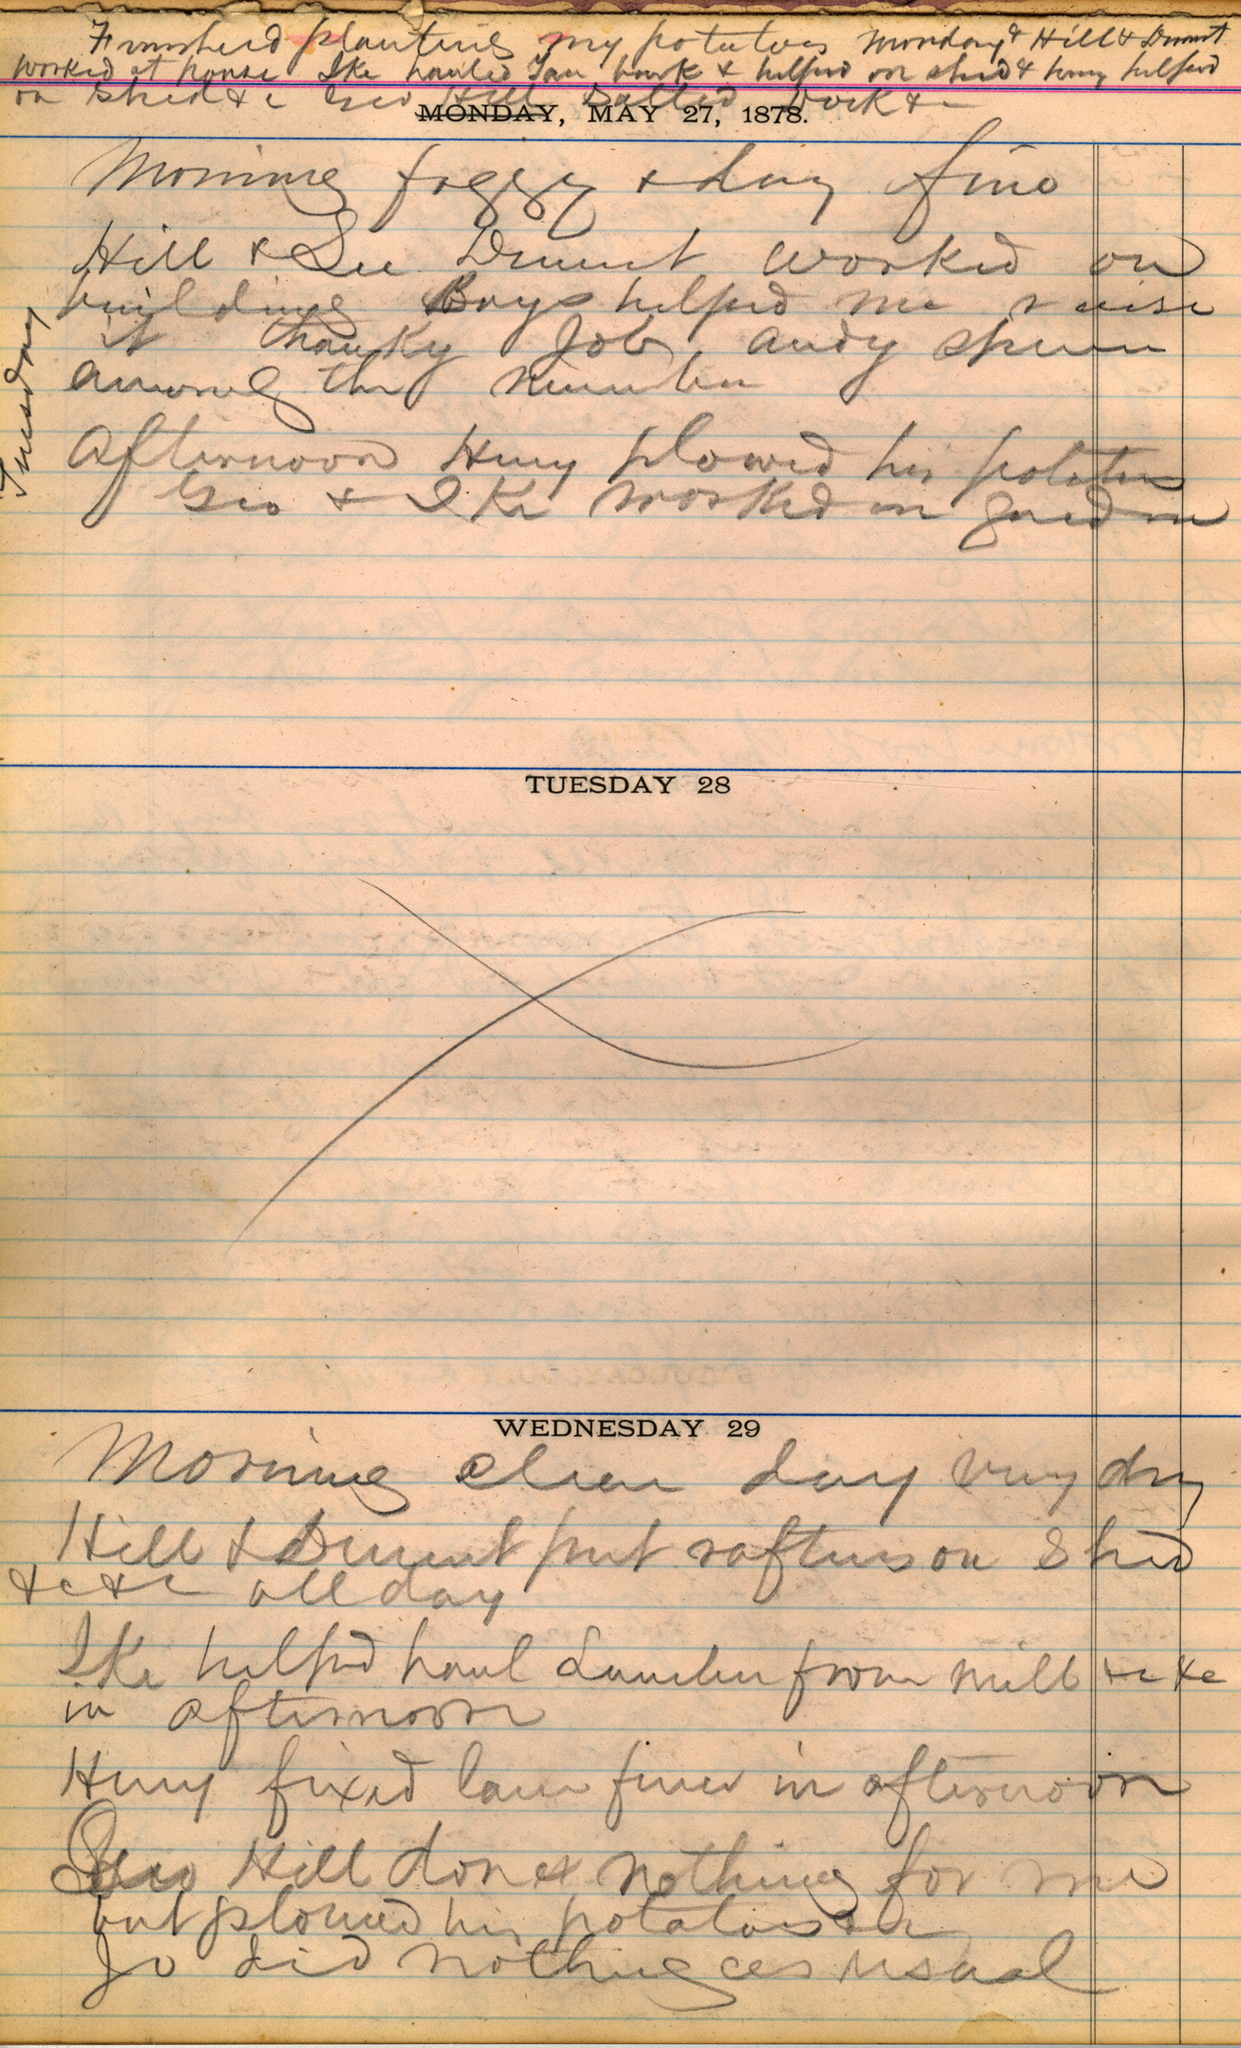 Finished planting my potatoes Monday & Hill & Dement
worked at house Ike hauled Tan bark & helped on shed & Henry helped
on shed &c Geo Hill Salted Pork &c
MONDAY, MAY 27, 1878.
Morning foggy & day fine
Hill & Lee Dement worked on
building Boys helped me raise
it thanky Job, Andy
among the number
Tuesday
Afternoon Henry plowed his potatoes
Geo & Ike worked in garden
TUESDAY 28
WEDNESDAY 29
Morning clear day very dry
Hill & Dement put rafters on Shed
&c &c all day
Ike helped haul Lumber from mill &c &c
in afternoon
Henry fixed lane fence in afternoon
Geo Hill done nothing for me
but plowed his potatoes &c
Jo did nothing as usual